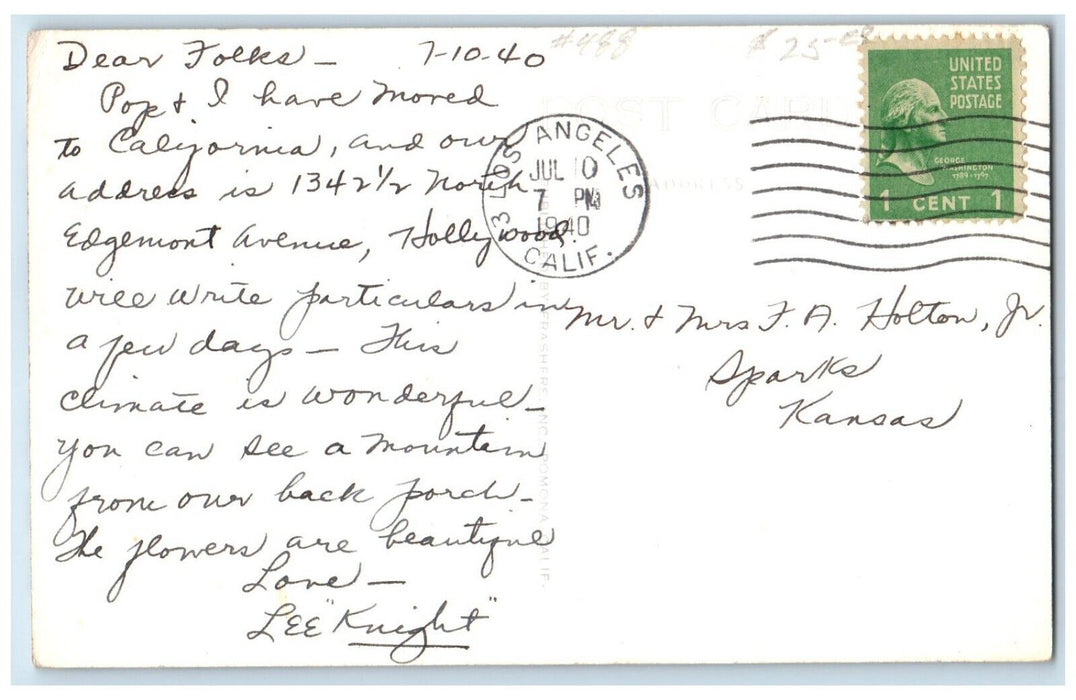 Dear Folks – 7-10-40
#488 $25.00
Pop & I have moved
to California, and our
address is 1342½ North
Edgemont Avenue, Hollywood.
will write particulars in
a few days – This
climate is wonderful –
you can see a mountain
from our back porch –
The flowers are beautiful
Love –
LEE "Knight"
POST CARD
ADDRESS
LOS ANGELES 3
JUL 10
7 PM
1940
CALIF.
UNITED
STATES
POSTAGE
GEORGE
WASHINGTON
1789-1797
1 CENT 1
Mr. & Mrs F. A. Holton, Jr.
Sparks
Kansas
BY FRASHERS, INC., POMONA, CALIF.